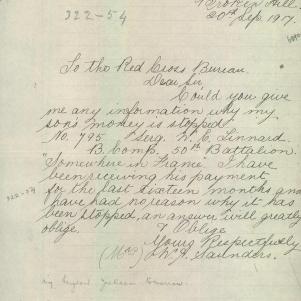 322-54
Broken Hill.
20th Sep 1917.
To the Red Cross Bureau.
Dear Sir
Could you give
me any information why my
son's money is stopped
No. 795 Serg. Linnard.
B. Comp. 50th Battalion.
"Somewhere in France". I have
been receiving his payment
for the last sixteen months and
have had no reason why it has
been stopped, an answer will greatly
oblige.
I Oblige
Yours Respectfully
(Mrs) Saunders.